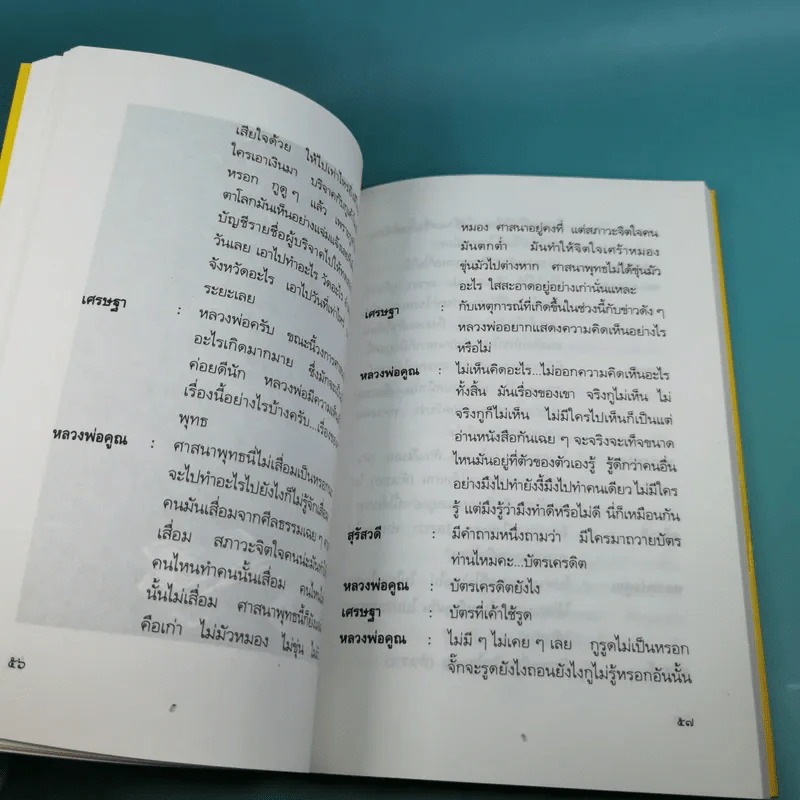 เสียใจด้วย ให้ไปเท่าไหร่
ใครเอาเงินมา บริจาค
หรอก กูดู ๆ แล้ว
ตาโลกมันเห็นอย่างแจ่มแจ้ง
บัญชีรายชื่อผู้บริจาคไปให้
วันเลย เอาไปทำอะไร วัดอะไร
จังหวัดอะไร เอาไปวันที่เท่าไหร่
ระยะเลย
เศรษฐา : หลวงพ่อครับ ขณะนี้วงการ
อะไรเกิดมากมาย ซึ่งมัก
ค่อยดีนัก หลวงพ่อมีความ
เรื่องนี้อย่างไรบ้างครับ...เรื่อง
พุทธ
หลวงพ่อคูณ : ศาสนาพุทธนี่ไม่เสื่อมเป็นหรอก
จะไปทำอะไรไปยังไงก็ไม่รู้จักเสื่อม
คนมันเสื่อมจากศีลธรรมเฉย ๆ
เสื่อม สภาวะจิตใจคนน่ะมัน
คนไหนทำคนนั้นเสื่อม คนไหน
นั้นไม่เสื่อม ศาสนาพุทธนี้ก็ยัง
คือเก่า ไม่มัวหมอง ไม่ขุ่น
๕๖
หมอง ศาสนาอยู่คงที่ แต่สภาวะจิตใจคน
มันตกต่ำ มันทำให้จิตใจเศร้าหมอง
ขุ่นมัวไปต่างหาก ศาสนาพุทธไม่ได้ขุ่นมัว
อะไร ใสสะอาดอยู่อย่างเก่านั่นแหละ
เศรษฐา : กับเหตุการณ์ที่เกิดขึ้นในช่วงนี้กับข่าวดัง ๆ
หลวงพ่ออยากแสดงความคิดเห็นอย่างไร
หรือไม่
หลวงพ่อคูณ : ไม่เห็นคิดอะไร...ไม่ออกความคิดเห็นอะไร
ทั้งสิ้น มันเรื่องของเขา จริงกูไม่เห็น ไม่
จริงกูก็ไม่เห็น ไม่มีใครไปเห็นก็เป็นแต่
อ่านหนังสือกันเฉย ๆ จะจริงจะเท็จขนาด
ไหนมันอยู่ที่ตัวของตัวเองรู้ รู้ดีกว่าคนอื่น
อย่างมึงไปทำยังงี้มึงไปทำคนเดียว ไม่มีใคร
รู้ แต่มึงรู้ว่ามึงทำดีหรือไม่ดี นี่ก็เหมือนกัน
สุรัสวดี : มีคำถามหนึ่งถามว่า มีใครมาถวายบัตร
ท่านไหมคะ...บัตรเครดิต
หลวงพ่อคูณ : บัตรเครดิตยังไง
เศรษฐา : บัตรที่เค้าใช้รูด
หลวงพ่อคูณ : ไม่มี ๆ ไม่เคย ๆ เลย กูรูดไม่เป็นหรอก
จั๊กจะรูดยังไงถอนยังไงกูไม่รู้หรอกอันนั้น
๕๗